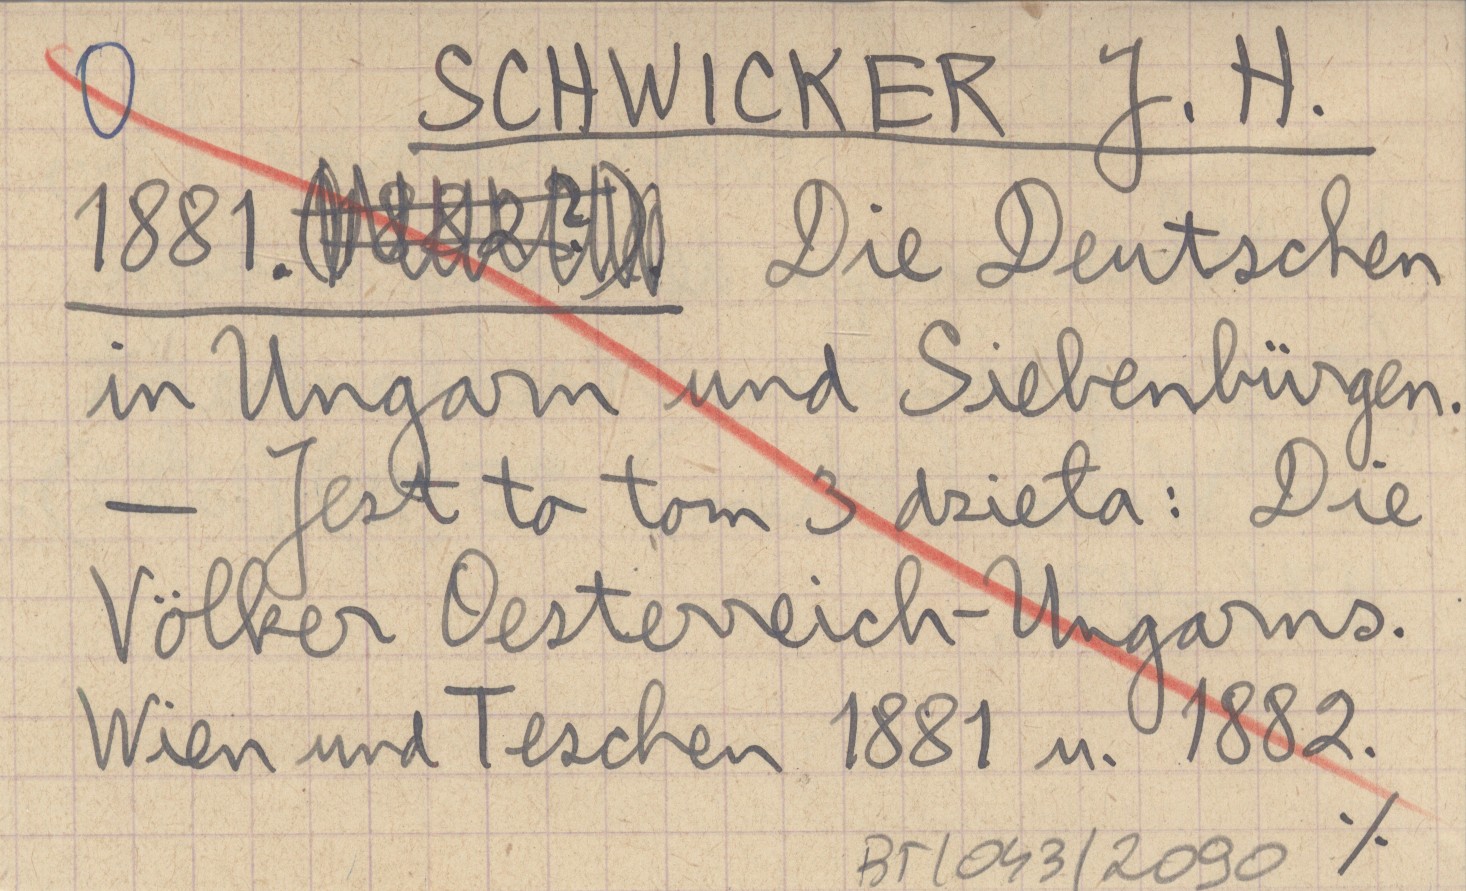 0 SCHWICKER J. H.
1881. (1882?). Die Deutschen
in Ungarn und Siebenbürgen.
— Jest to tom 3 dzieła: Die
Völker Oesterreich-Ungarns.
Wien und Teschen 1881 u. 1882.
%
BT/043/2090